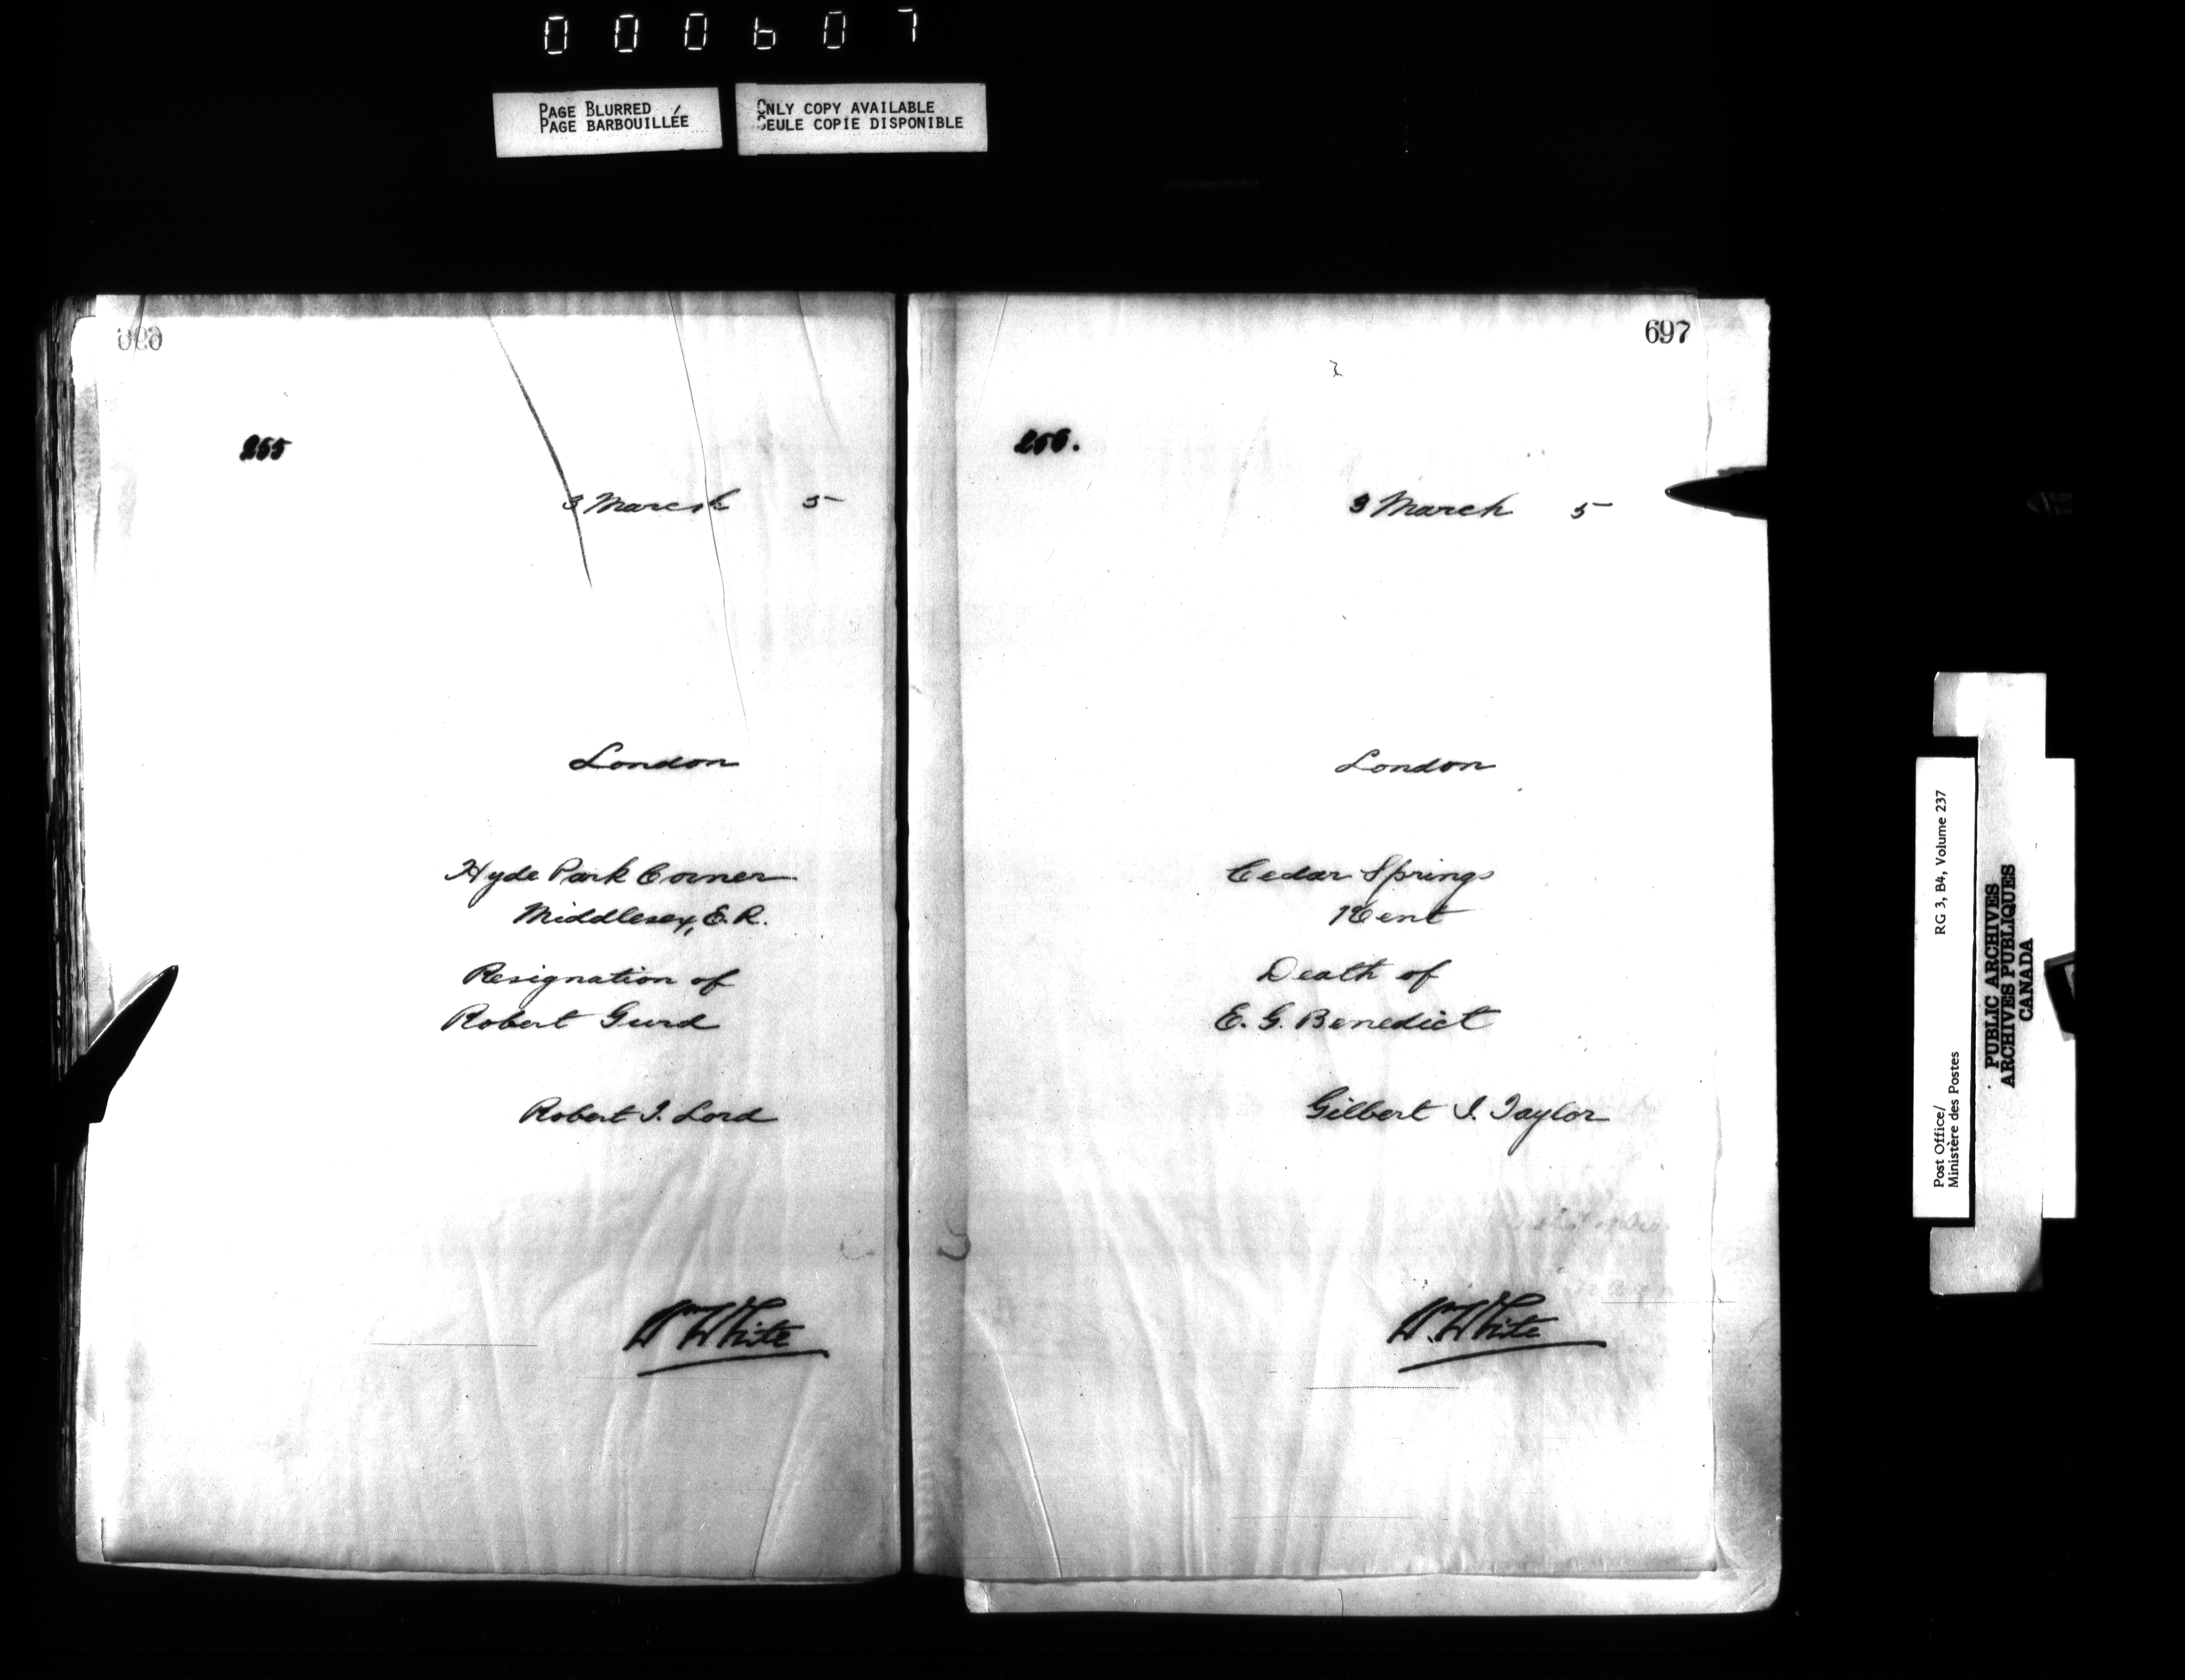 000607
PAGE BLURRED
PAGE BARBOUILLÉE
ONLY COPY AVAILABLE
SEULE COPIE DISPONIBLE
255
3 March 5
London
Hyde Park Corner
Middlesex, E.R.
Resignation of
Robert Gurd
Robert J. Lord
Wm White
697
256.
3 March 5
London
Cedar Springs
Kent
Death of
E. G. Benedict
Gilbert J. Taylor
Wm White
Post Office/ RG 3, B4, Volume 237
Ministère des Postes
PUBLIC ARCHIVES
ARCHIVES PUBLIQUES
CANADA